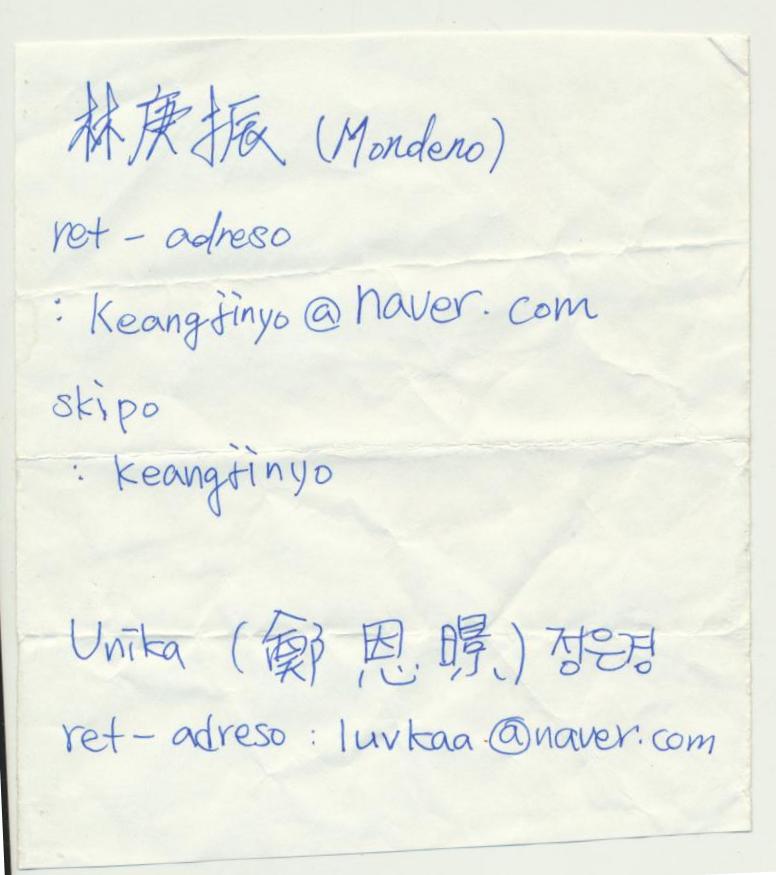 林庚振 (Mondeno)
ret - adreso
: keangjinyo@naver.com
skipo
: keangjinyo
Unika (鄭恩暻) 정은경
ret - adreso : luvkaa@naver.com